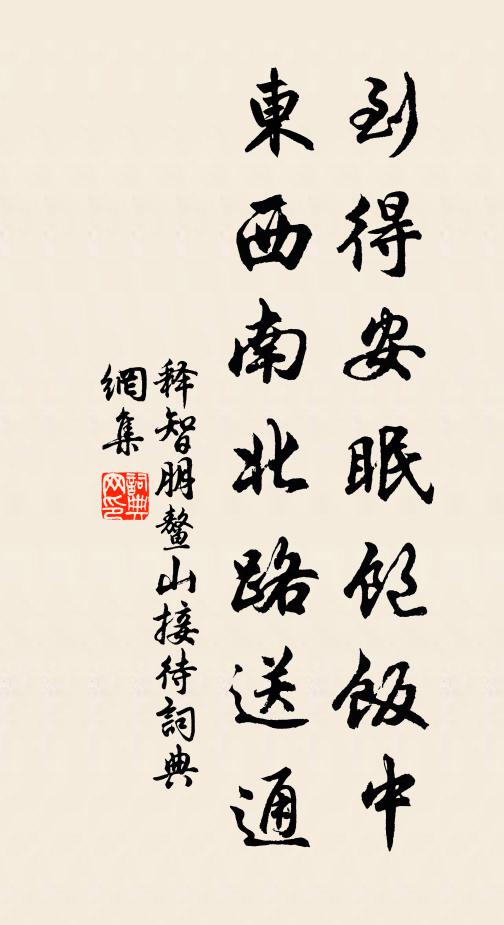 到得安眠飽飯中
東西南北路送通
释智朋鰲山接待詞典
網集
詞典
网印